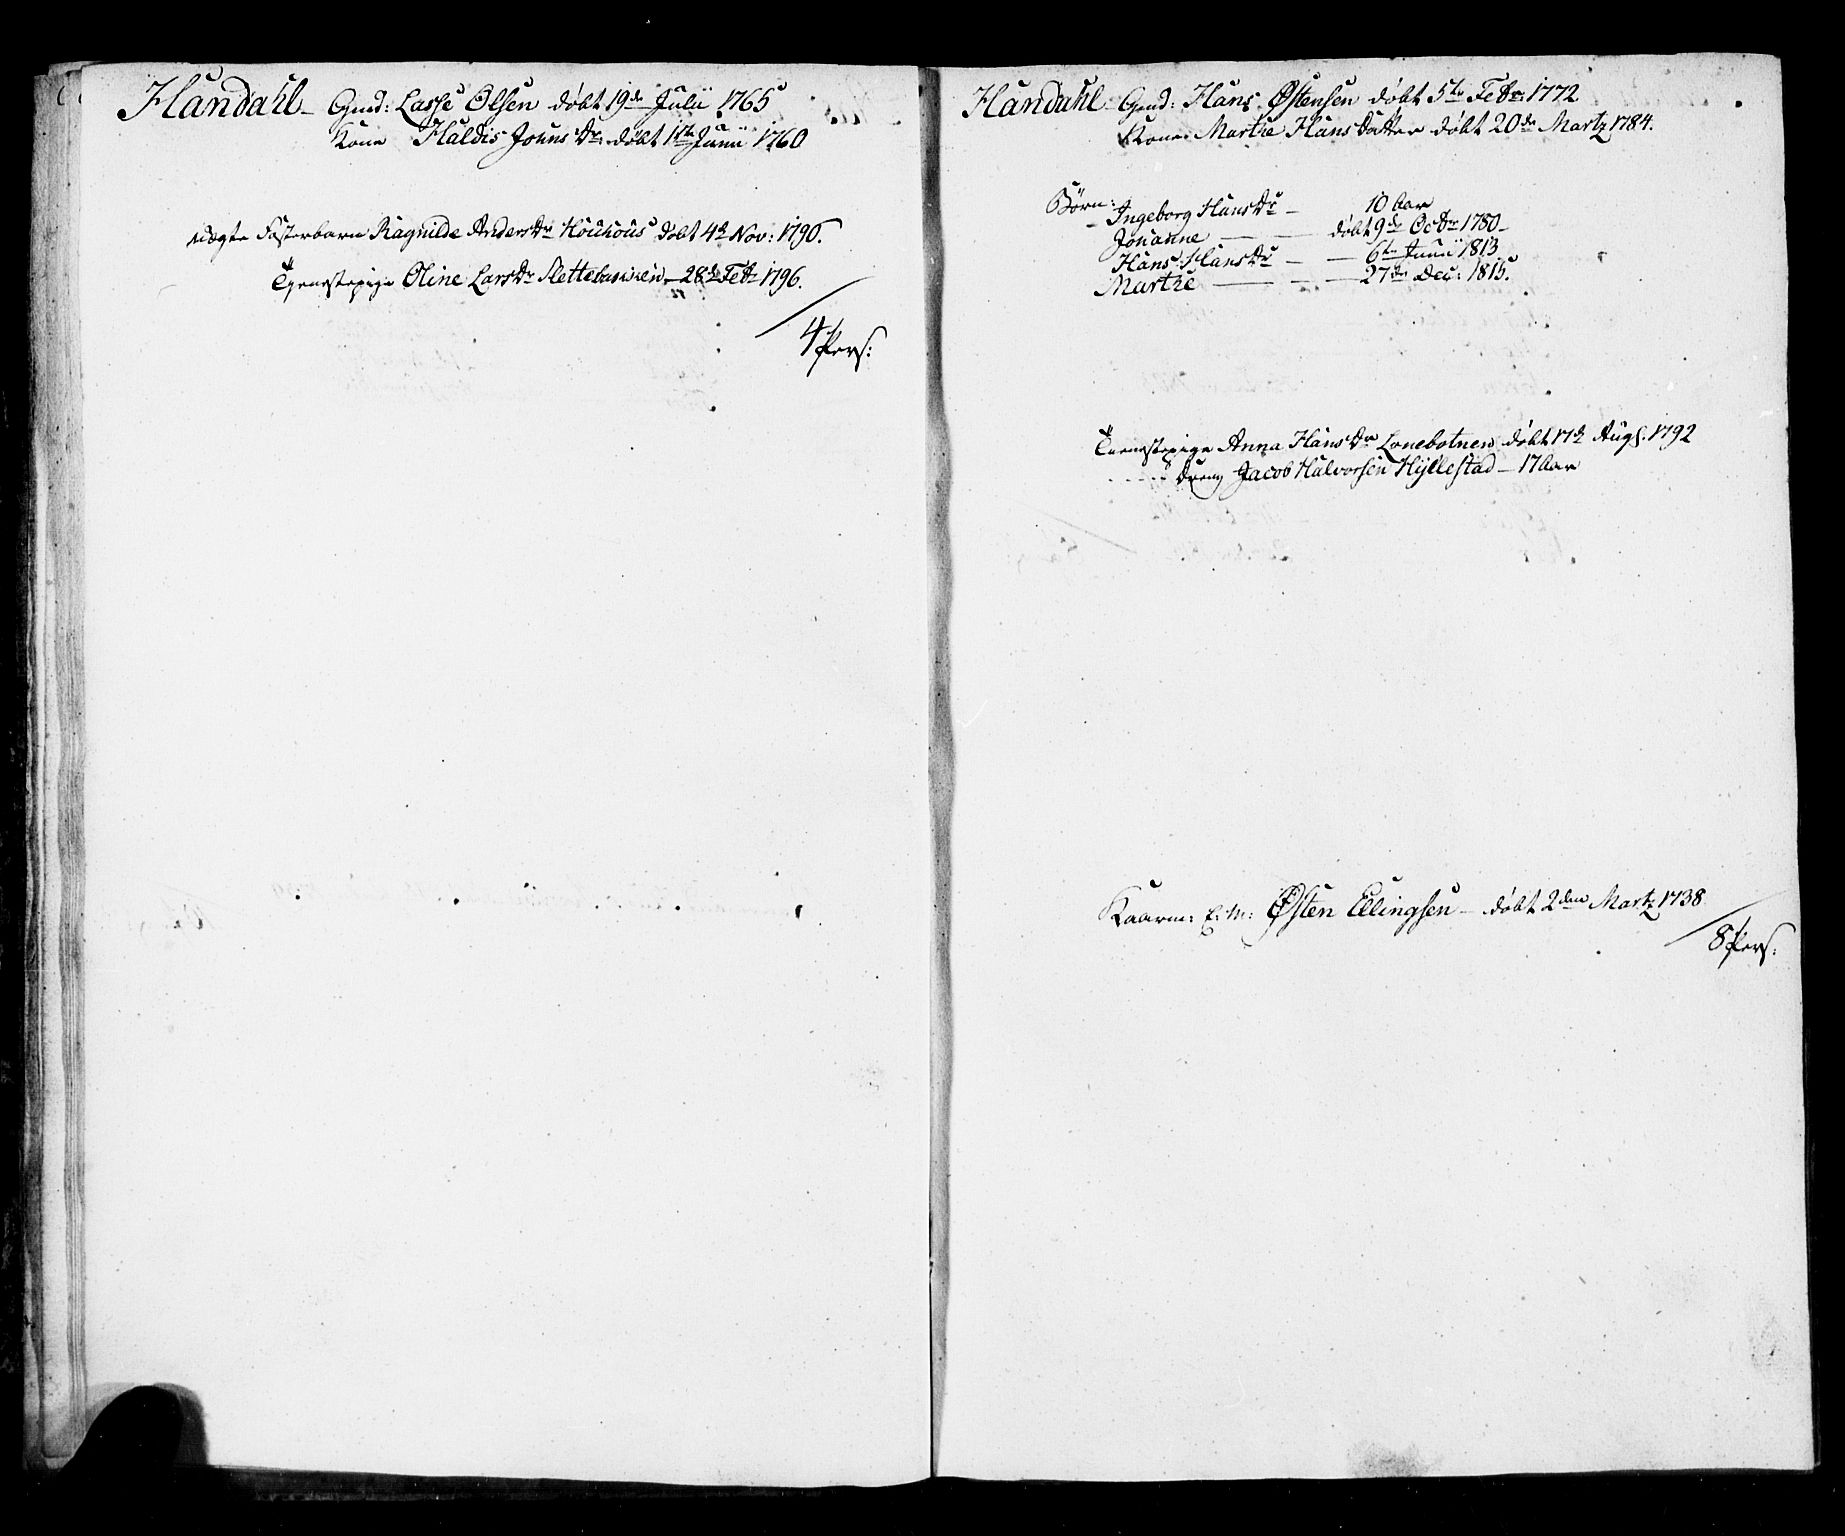 Handahl – Gmd: Lasse Olsen døbt 19de Julii 1765
Kone Haldis Johns Dr: døbt 11te Junii 1760
ægte Fosterbarn Ragnilde Anders Dr Houhous døbt 4de Nov: 1790.
Tjenestepige Oline Lars Dr – 28de Febr 1796.
4 Pers:
Handahl Gmd: Hans Østensen døbt 5te Febr: 1772
Kone Marthe Hans Datter døbt 20de Martz 1784.
Børn: Ingeborg Hans Dr – 10 Aar
Johanne – – døbt 9de Octbr 1780 –
Hans Hans Dr – – 6te Junii 1813
Marthe – – – 27de Dec: 1815.
Tienestepige Anna Hans Dr Lonebotnen døbt 17de Augs. 1792
Dreng Jacob Halvorsen Hyllestad – 17 Aar
Kaarm: E: M: Østen Ellingsen – døbt 2den Martz 1738
8 Pers: